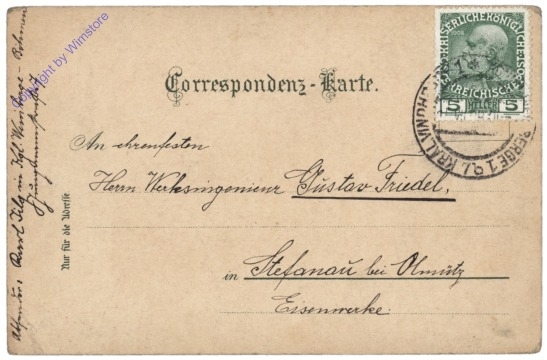 Copyright by Wimstore
KAISERLICHE KÖNIGLICHE ÖS
1908
REICHISCHE
5 HELLER 5
Correspondenz-Karte.
An ehrenfesten
Herrn Werksingenieur Gustav Friedel,
in Stefanau bei Olmütz
Eisenwerke.
Nur für die Adresse
Karl in Kgl. Weinberge - Böhmen